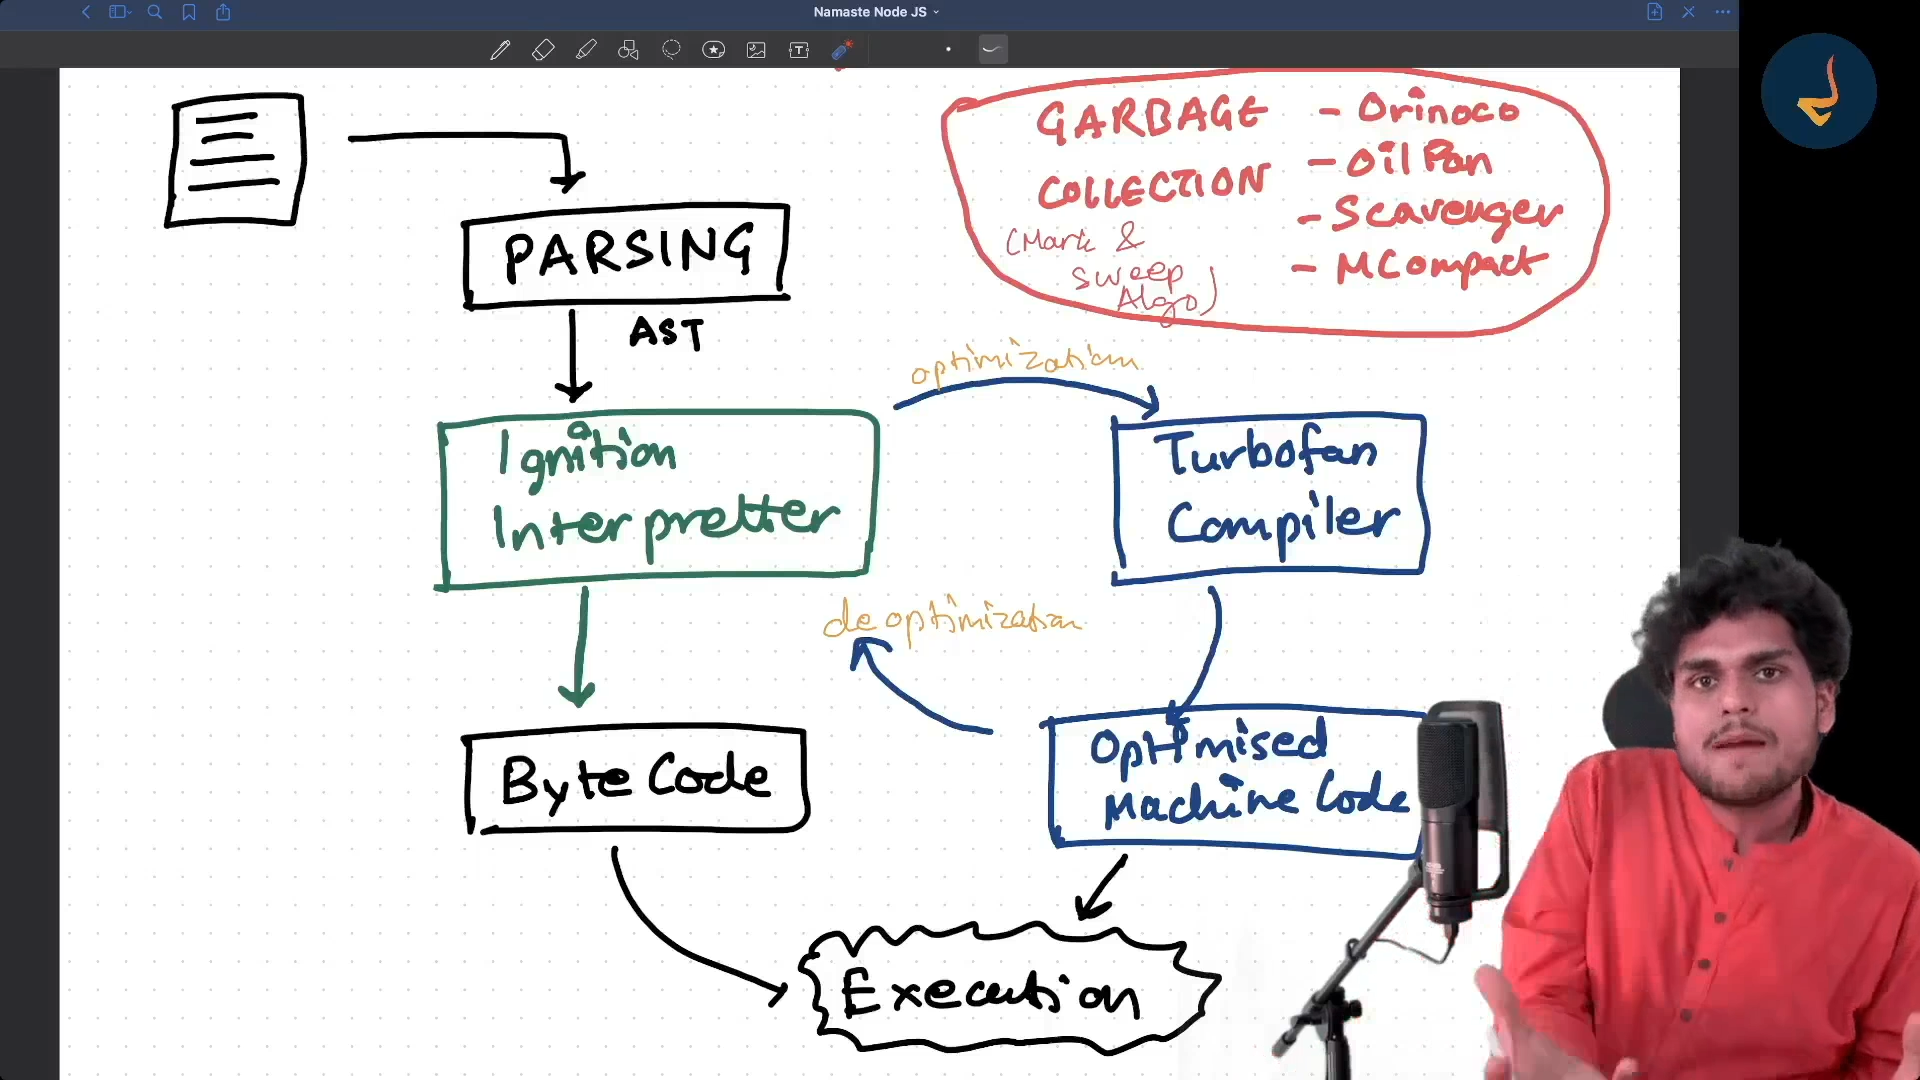 Namaste Node JS
GARBAGE
COLLECTION
(Mark &
sweep
Algo)
- Orinoco
- Oilpan
- Scavenger
- MCompact
PARSING
AST
optimization
Ignition
Interpretter
Turbofan
Compiler
deoptimization
Byte Code
Optimised
Machine Code
Execution